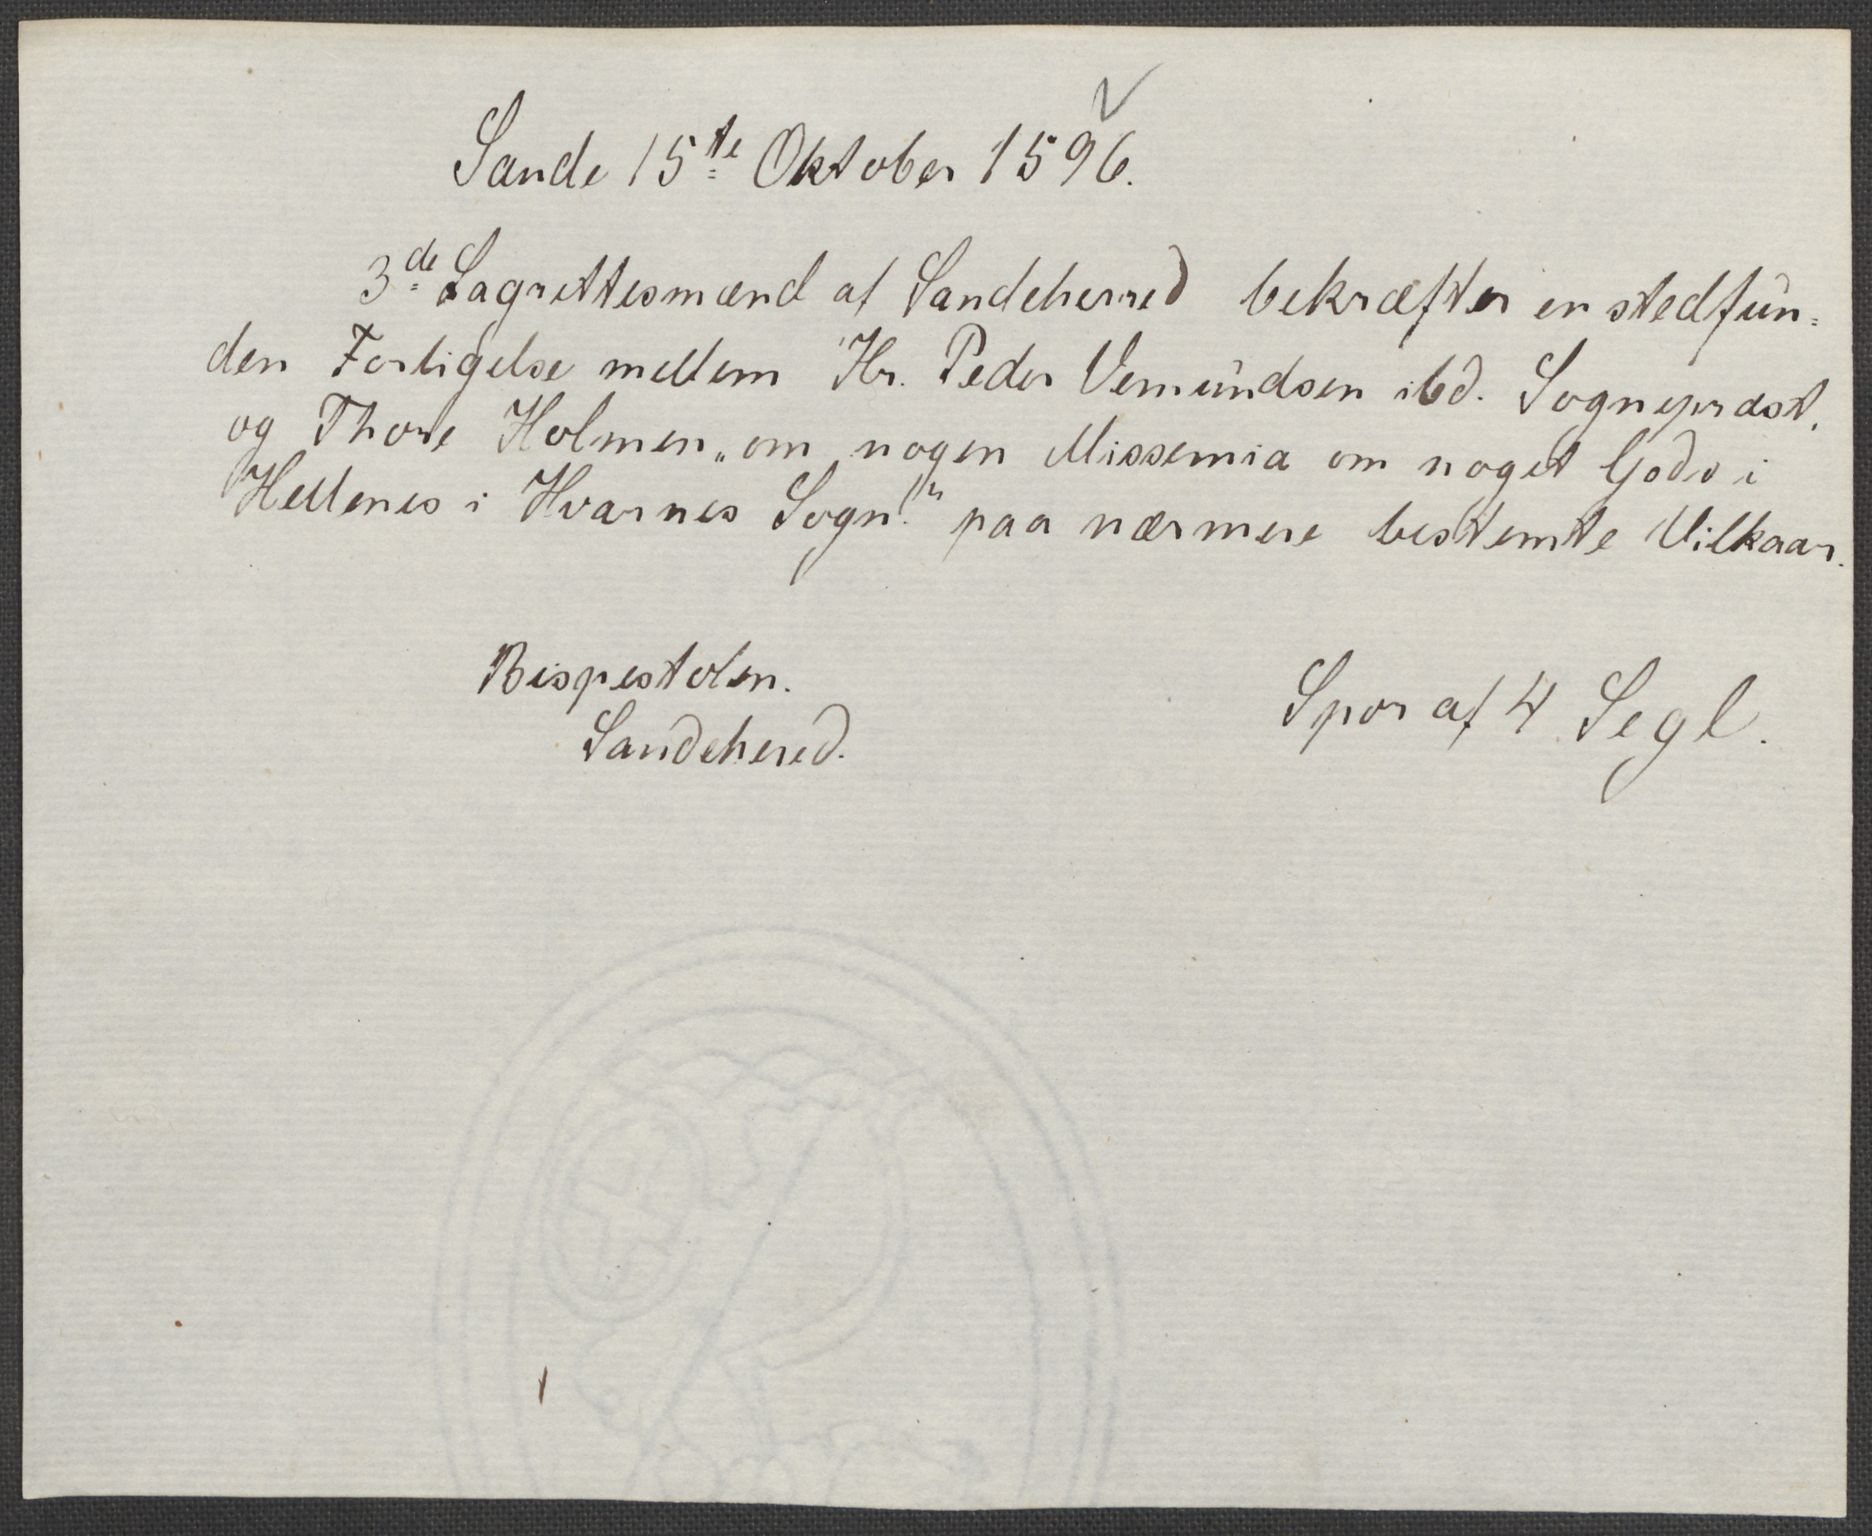 Sande 15te Oktober 1596.
3de Lagrettesmænd af Sandeherred bekræfter en stedfun=
den Forligelse mellem Hr. Peder Vemundsen ibd. Sognepræst,
og Thore Holmen „om nogen Missemia om noget Gods i
Hellenes i Hvarnes Sogn." paa nærmere bestemte Vilkaar.
Bispestolen.
Sandehered.
Spor af 4 Segl.